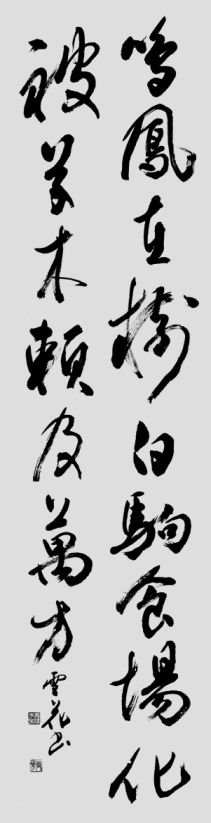 鳴鳳在樹白駒食場化
被草木頼及萬方 雲花書